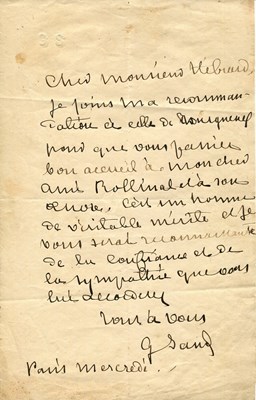 Cher monsieur Hébrard,
Je joins ma recomman-
dation à celle de
pour que vous fassiez
bon accueil à mon cher
ami Rollinat et à son
œuvre. C'est un homme
de véritable mérite et je
vous serai reconnaissante
de la confiance et de
la sympathie que vous
lui accorderez
Tout à vous
G Sand
Paris mercredi.